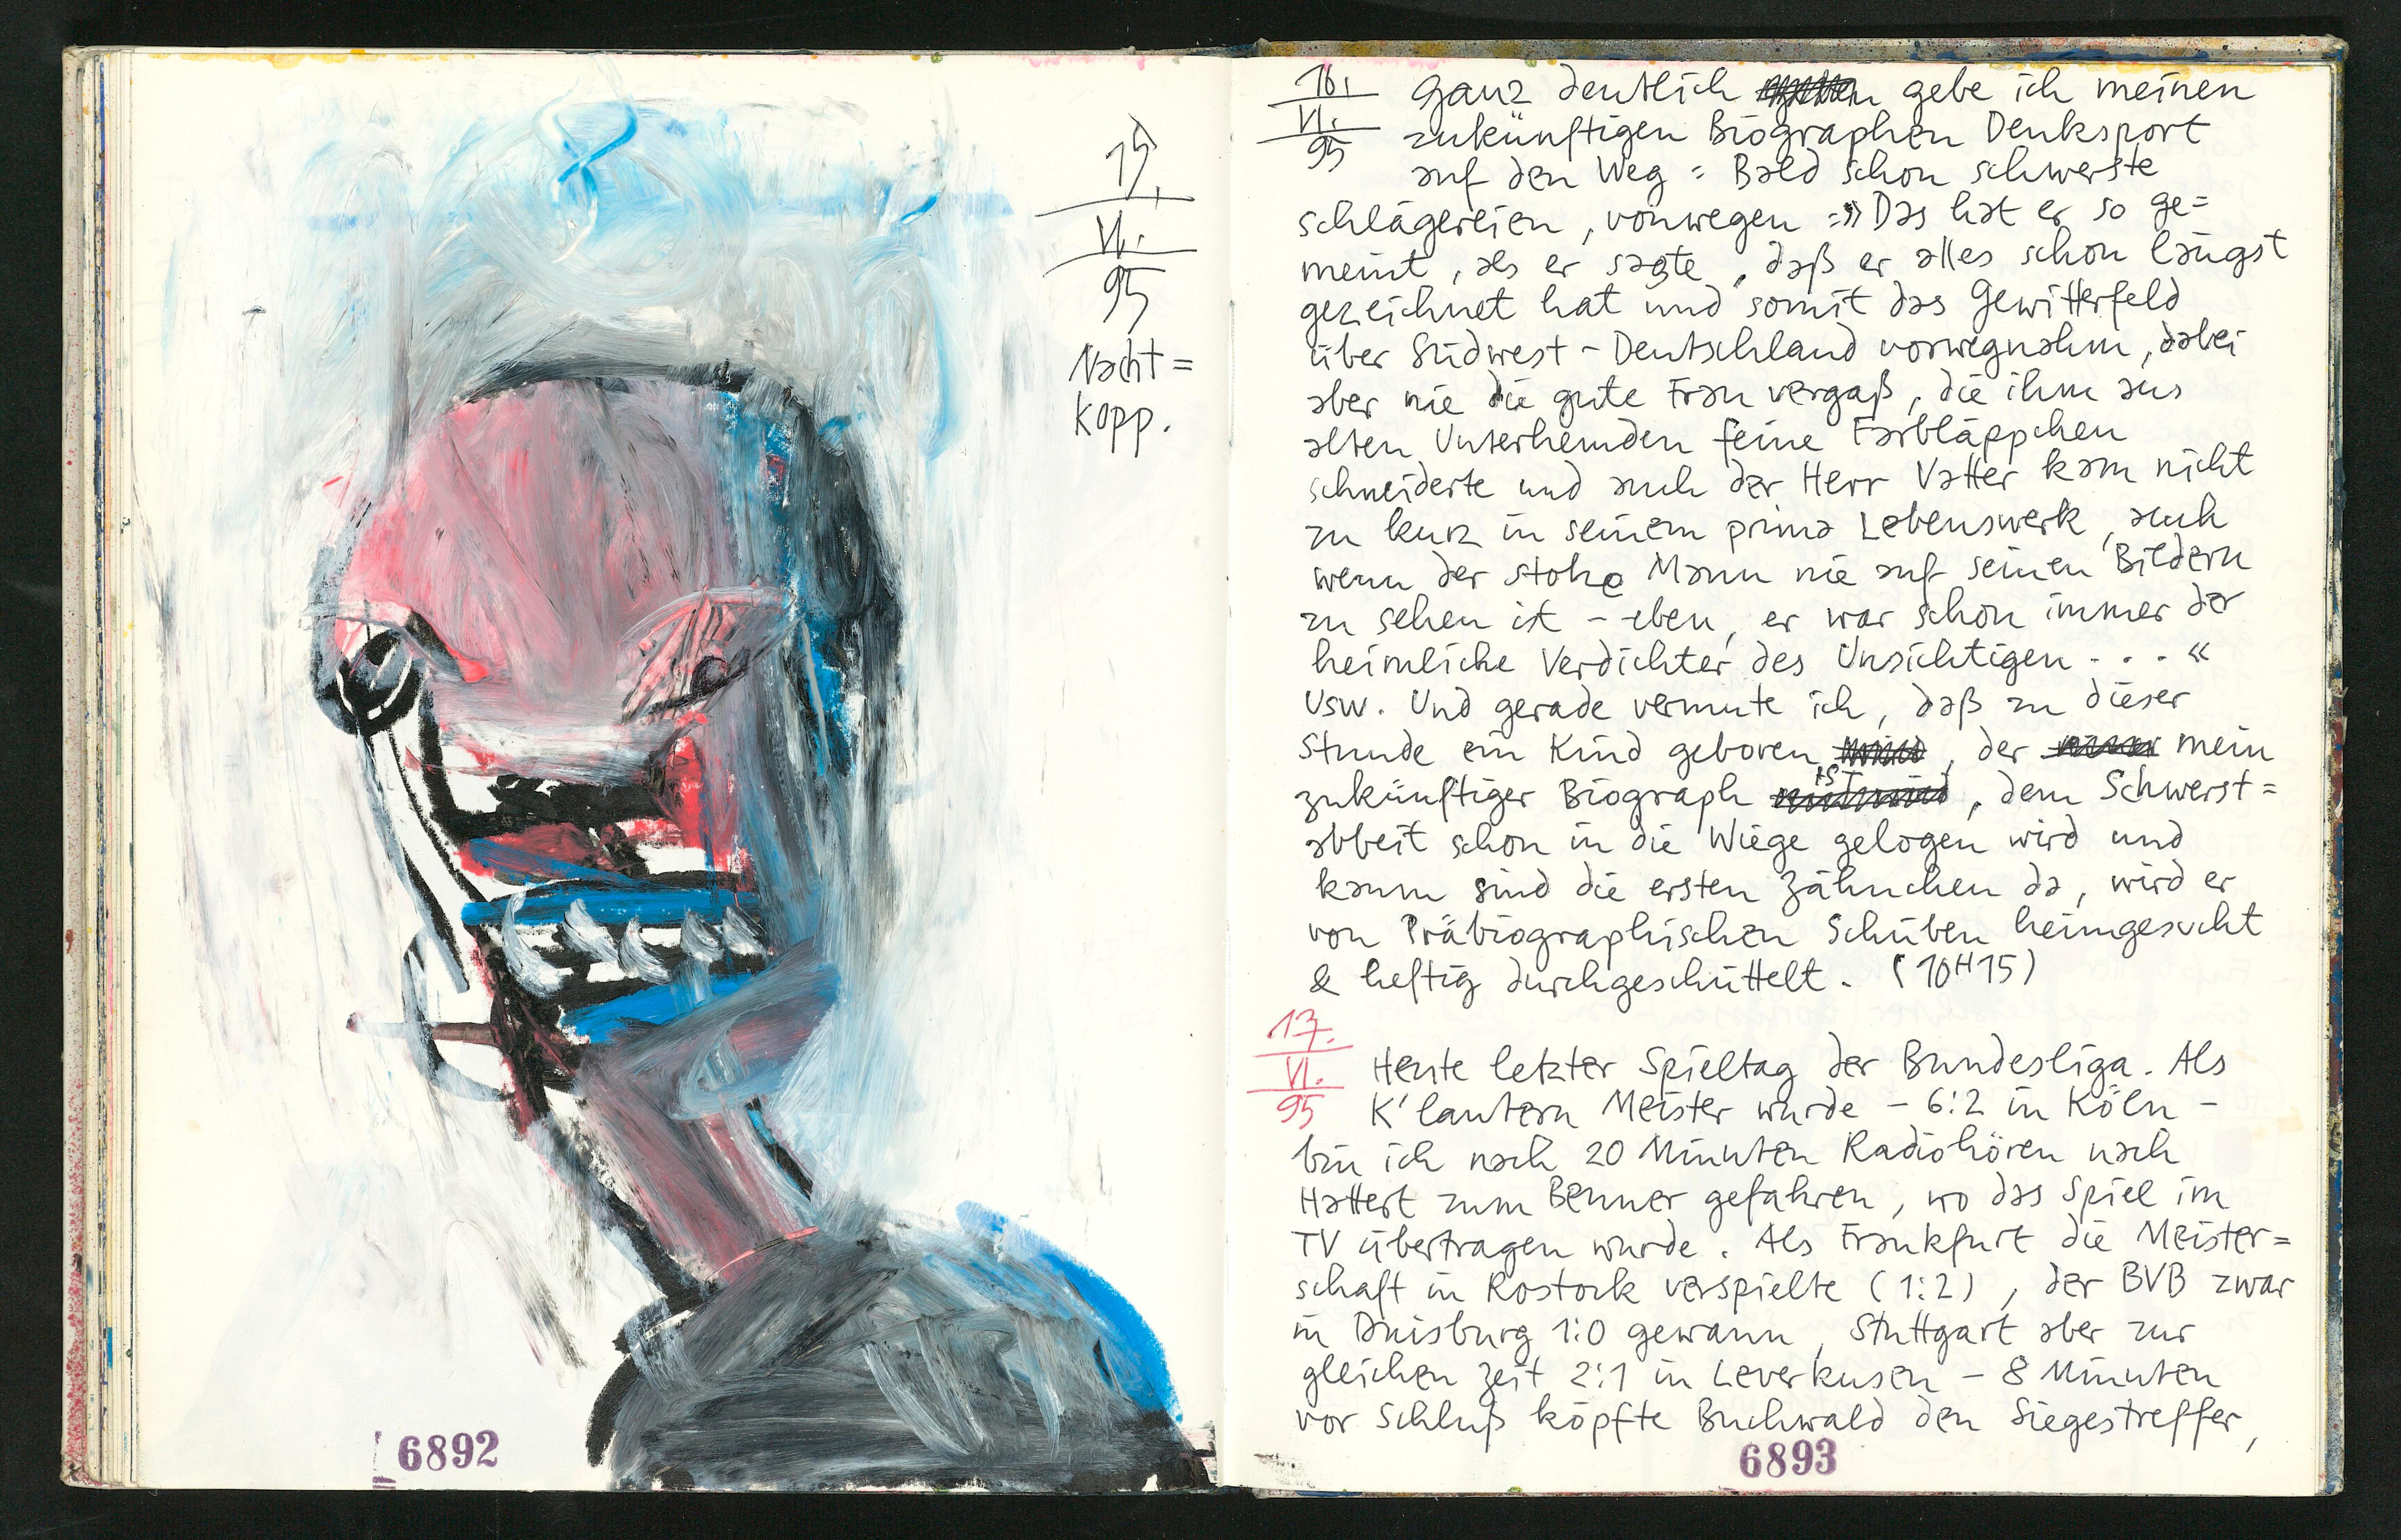 15.
VI.
95
Nacht=
kopp.
6892
16.
VI.
95
Ganz deutlich gebe ich meinen
zukünftigen Biographen Denksport
auf den Weg : Bald schon schwerste
schlägereien, vonwegen :»Das hat er so ge=
meint, als er sagte, daß er alles schon längst
gezeichnet hat und somit das Gewitterfeld
über Südwest-Deutschland vorwegnahm, dabei
aber nie die gute Frau vergaß, die ihm aus
alten Unterhemden feine Farbläppchen
schneiderte und auch der Herr Vatter kam nicht
zu kurz in seinem prima Lebenswerk, auch
wenn der stolze Mann nie auf seinen Bildern
zu sehen ist - eben, er war schon immer der
heimliche Verdichter des Unsichtigen . . . «
Usw. Und gerade vermute ich, daß zu dieser
Stunde ein Kind geboren, der mein
zukünftiger Biograph ist, dem Schwerst=
abbeit schon in die Wiege gelogen wird und
kaum sind die ersten Zähnchen da, wird er
von Präbiographischen Schüben heimgesucht
& heftig durchgeschüttelt. (10H15)
17.
VI.
95
Heute letzter Spieltag der Bundesliga. Als
K'lautern Meister wurde - 6:2 in Köln -
bin ich nach 20 Minuten Radiohören nach
Hattert zum Benner gefahren, wo das Spiel im
TV übertragen wurde. Als Frankfurt die Meister=
schaft in Rostock verspielte (1:2), der BVB zwar
in Duisburg 1:0 gewann, Stuttgart aber zur
gleichen Zeit 2:1 in Leverkusen - 8 Minuten
vor Schluß köpfte Buchwald den Siegestreffer,
6893